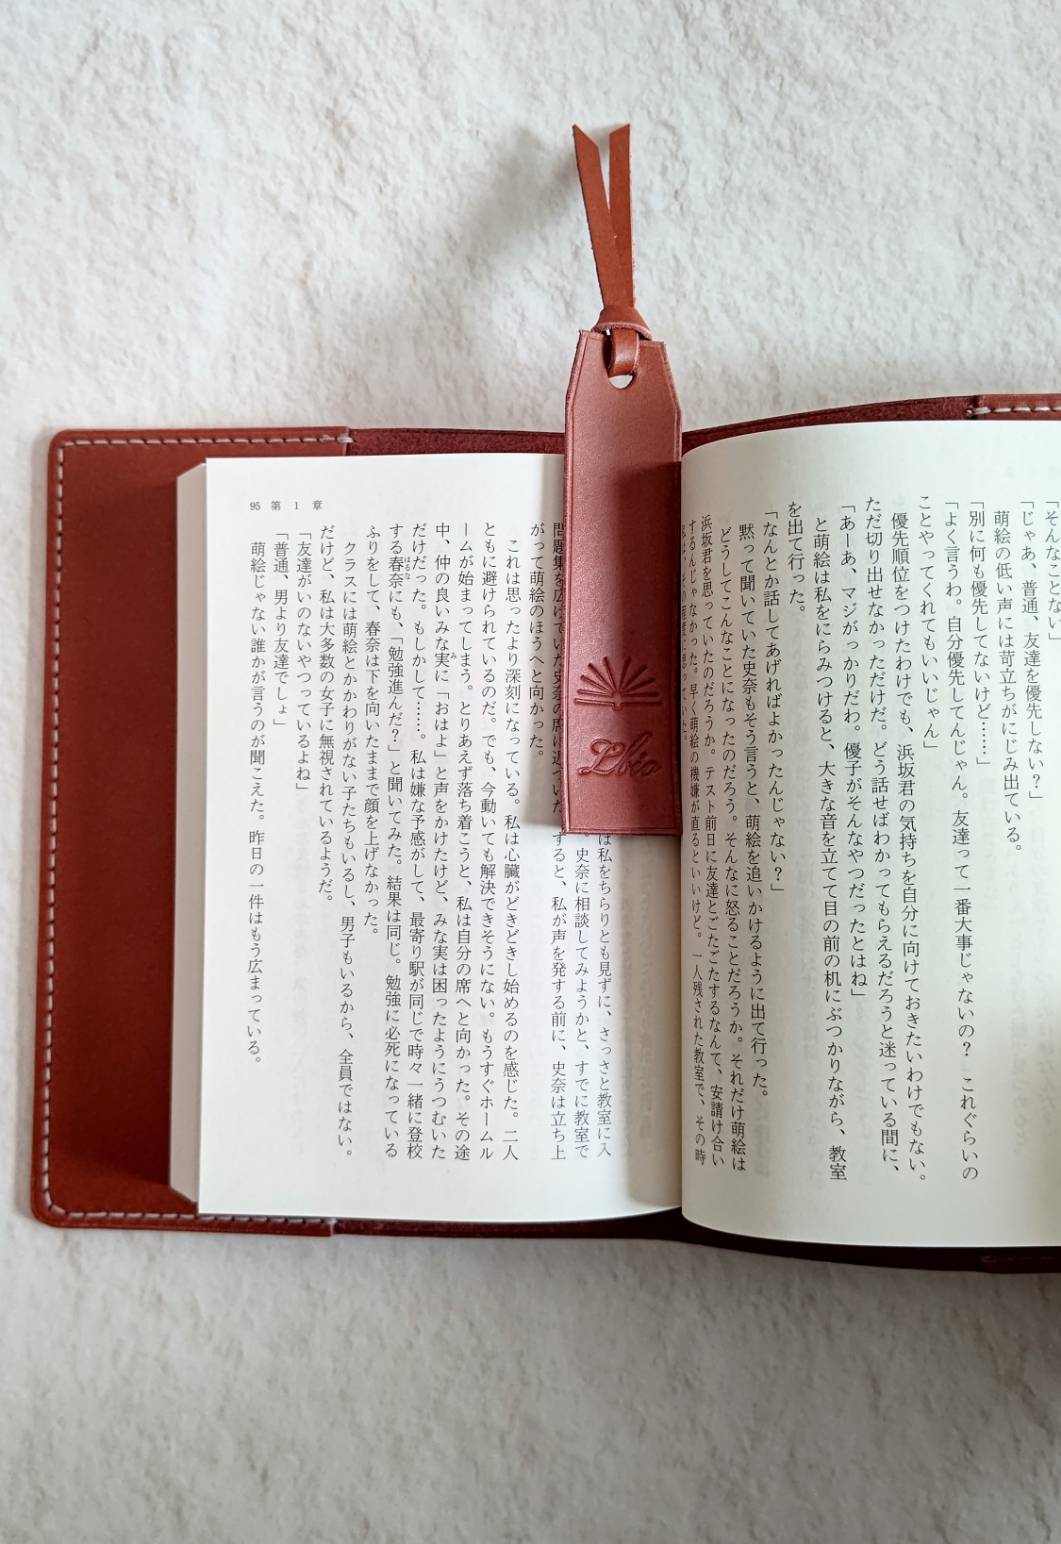 「そんなことない」
「じゃあ、普通、友達を優先しない？」
萌絵の低い声には苛立ちがにじみ出ている。
「別に何も優先してないけど……」
「よく言うわ。自分優先してんじゃん。友達って一番大事じゃないの？　これぐらいの
ことやってくれてもいいじゃん」
優先順位をつけたわけでも、浜坂君の気持ちを自分に向けておきたいわけでもない。
ただ切り出せなかっただけだ。どう話せばわかってもらえるだろうと迷っている間に、
「あーあ、マジがっかりだわ。優子がそんなやつだったとはね」
と萌絵は私をにらみつけると、大きな音を立てて目の前の机にぶつかりながら、教室
を出て行った。
「なんとか話してあげればよかったんじゃない？」
黙って聞いていた史奈もそう言うと、萌絵を追いかけるように出て行った。
どうしてこんなことになったのだろう。そんなに怒ることだろうか。それだけ萌絵は
浜坂君を思っていたのだろうか。テスト前日に友達とごたごたするなんて、安請け合い
するんじゃなかった。早く萌絵の機嫌が直るといいけど。一人残された教室で、その時
は私をちらりとも見ずに、さっさと教室に入
史奈に相談してみようかと、すでに教室で
問題集を広げていた史奈の席に近づいた。すると、私が声を発する前に、史奈は立ち上
がって萌絵のほうへと向かった。
これは思ったより深刻になっている。私は心臓がどきどきし始めるのを感じた。二人
ともに避けられているのだ。でも、今動いても解決できそうにない。もうすぐホームル
ームが始まってしまう。とりあえず落ち着こうと、私は自分の席へと向かった。その途
中、仲の良いみな実に「おはよ」と声をかけたけど、みな実は困ったようにうつむいた
だけだった。もしかして……。私は嫌な予感がして、最寄り駅が同じで時々一緒に登校
する春奈にも、「勉強進んだ？」と聞いてみた。結果は同じ。勉強に必死になっている
ふりをして、春奈は下を向いたままで顔を上げなかった。
クラスには萌絵とかかわりがない子たちもいるし、男子もいるから、全員ではない。
だけど、私は大多数の女子に無視されているようだ。
「友達がいのないやつっているよね」
「普通、男より友達でしょ」
萌絵じゃない誰かが言うのが聞こえた。昨日の一件はもう広まっている。
95 第1章